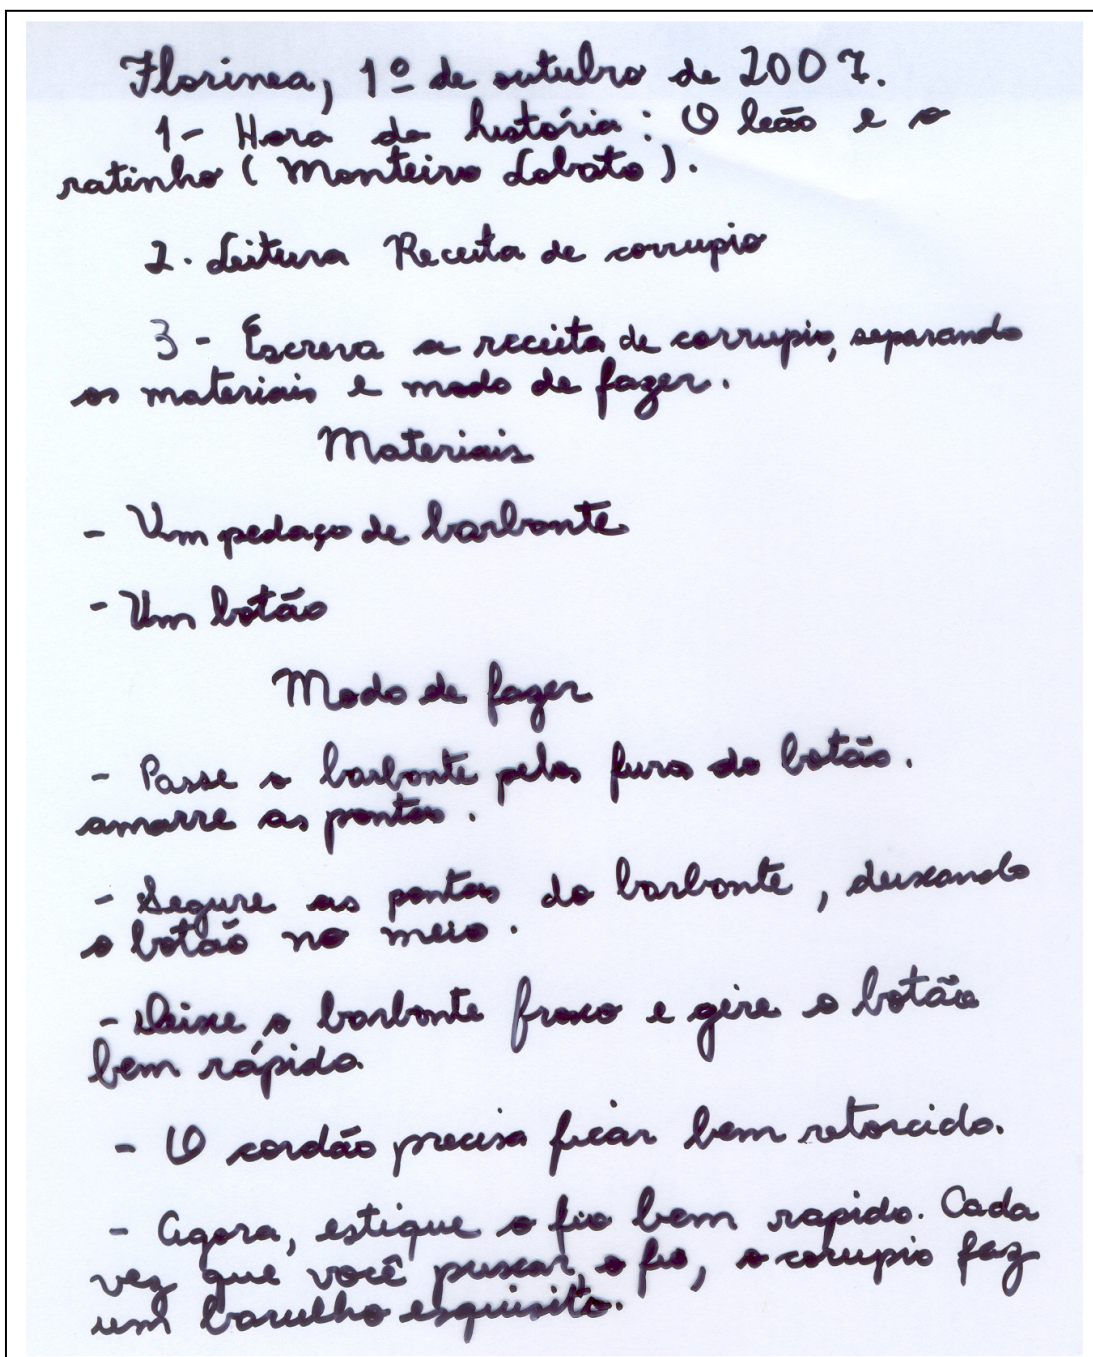 Florinea, 1º de outubro de 2007.
1- Hora da história: O leão e o
ratinho (Monteiro Lobato).
2. Leitura Receita de corrupio
3- Escreva a receita de corrupio, separando
os materiais e modo de fazer.
Materiais
- Um pedaço de barbante
- Um botão
Modo de fazer
- Passe o barbante pelos furos do botão.
amarre as pontas.
- Segure as pontas do barbante, deixando
o botão no meio.
- Deixe o barbante froxo e gire o botão
bem rápido.
- O cordão precisa ficar bem retorcido.
- Agora, estique o fio bem rapido. Cada
vez que você puxar o fio, o corupio faz
um barulho esquisito.